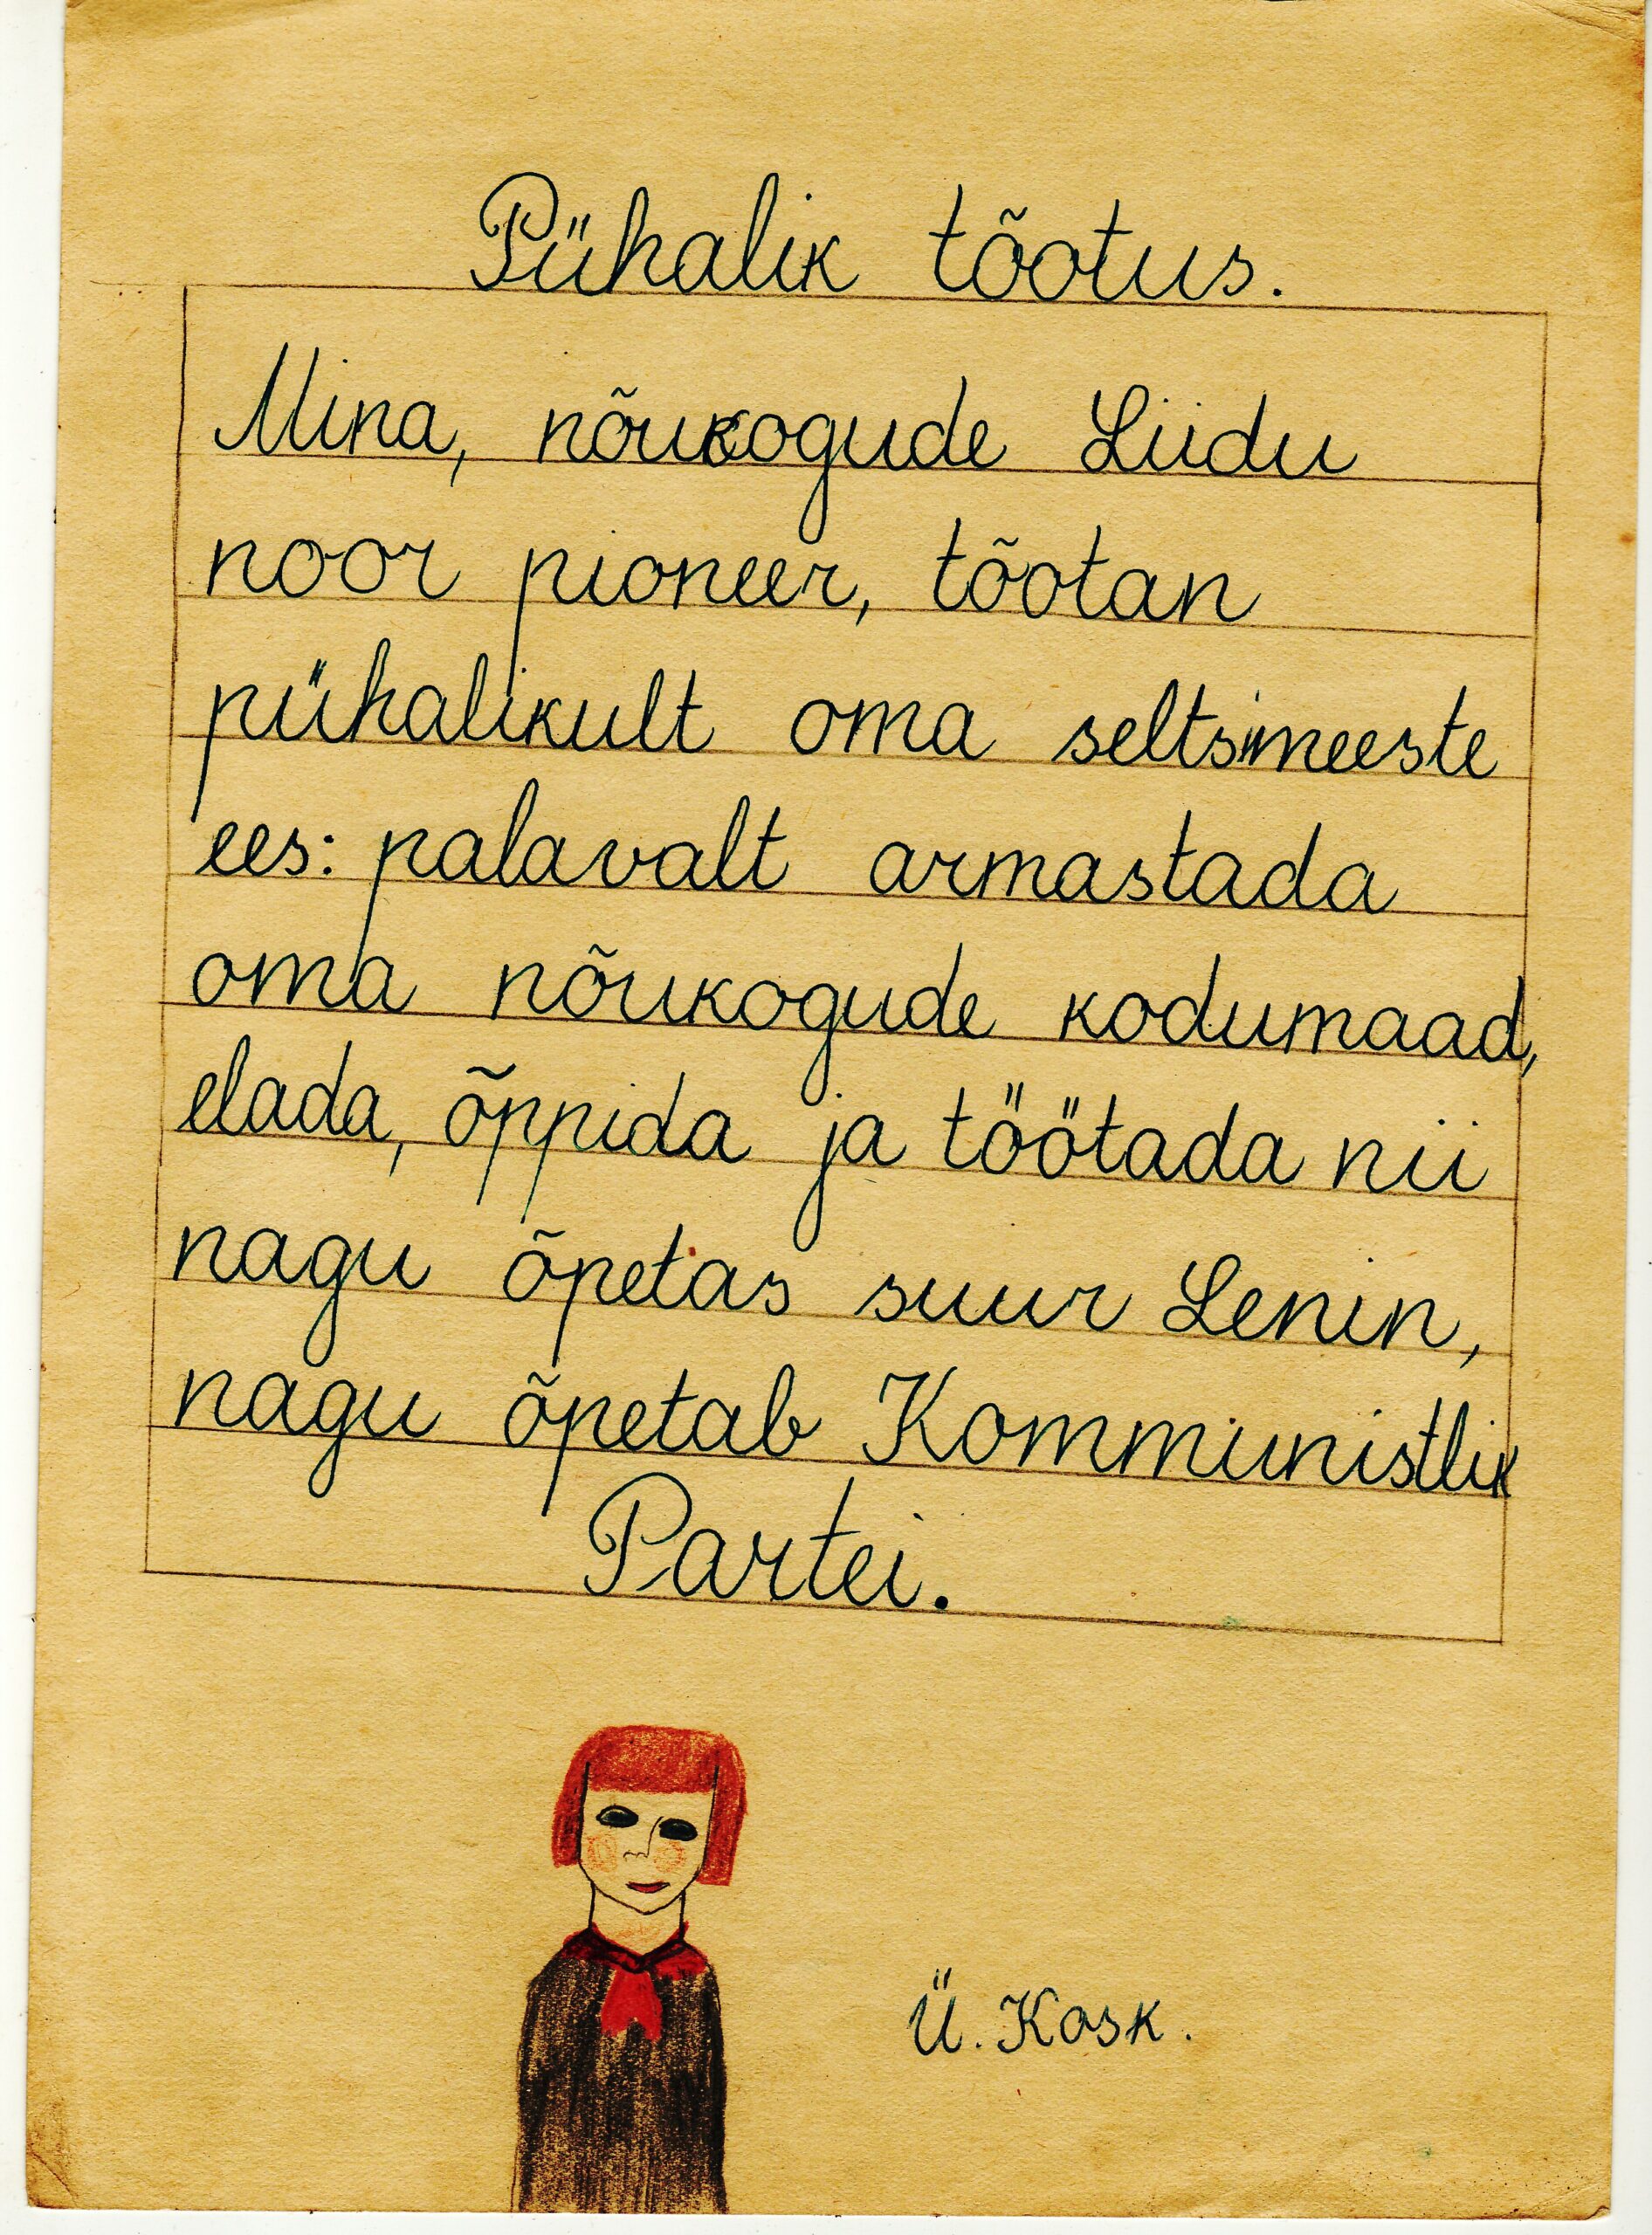 Pühalik tõotus.
Mina, nõukogude Liidu
noor pioneer, tõotan
pühalikult oma seltsimeeste
ees: palavalt armastada
oma nõukogude kodumaad,
elada, õppida ja töötada nii
nagu õpetas suur Lenin,
nagu õpetab Kommunistlik
Partei.
Ü. Kask.